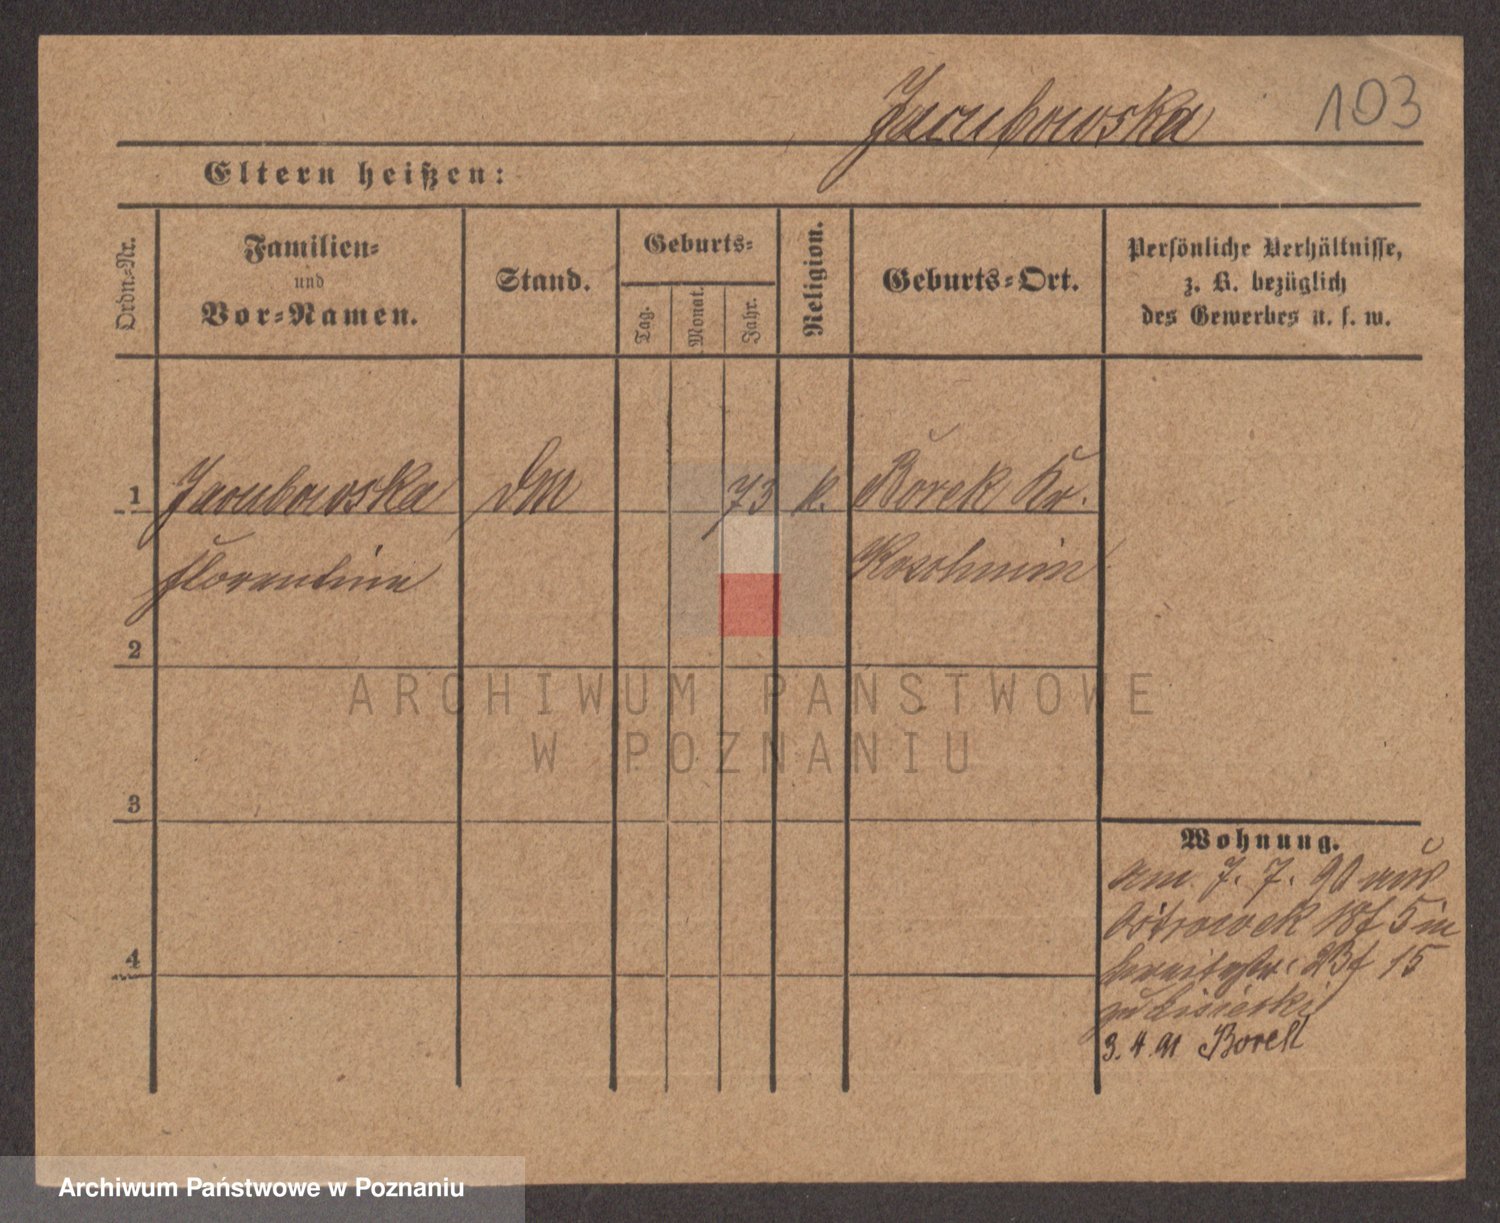 Jacubowska
103
Eltern heißen:
Ordn.-Nr.
Familien-
und
Vor-Namen.
Stand.
Geburts-
Tag.
Monat.
Jahr.
Religion.
Geburts-Ort.
Persönliche Verhältnisse,
z. B. bezüglich
des Gewerbes u. s. w.
1
Jacubowska
DM
73
k.
Borek Kr.
Florentine
Koschmin
2
ARCHIWUM PAŃSTWOWE
W POZNANIU
3
Wohnung.
am 7. 7. 90 aus
Ostrowek 18 f 5 in
23 f 15
zu
4
3. 4. 91 Borek
Archiwum Państwowe w Poznaniu